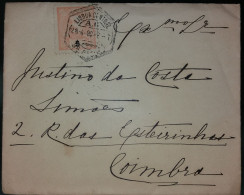 Exmo Sr
Justino da Costa
Simões
2. R. das Esteirinhas
Coimbra